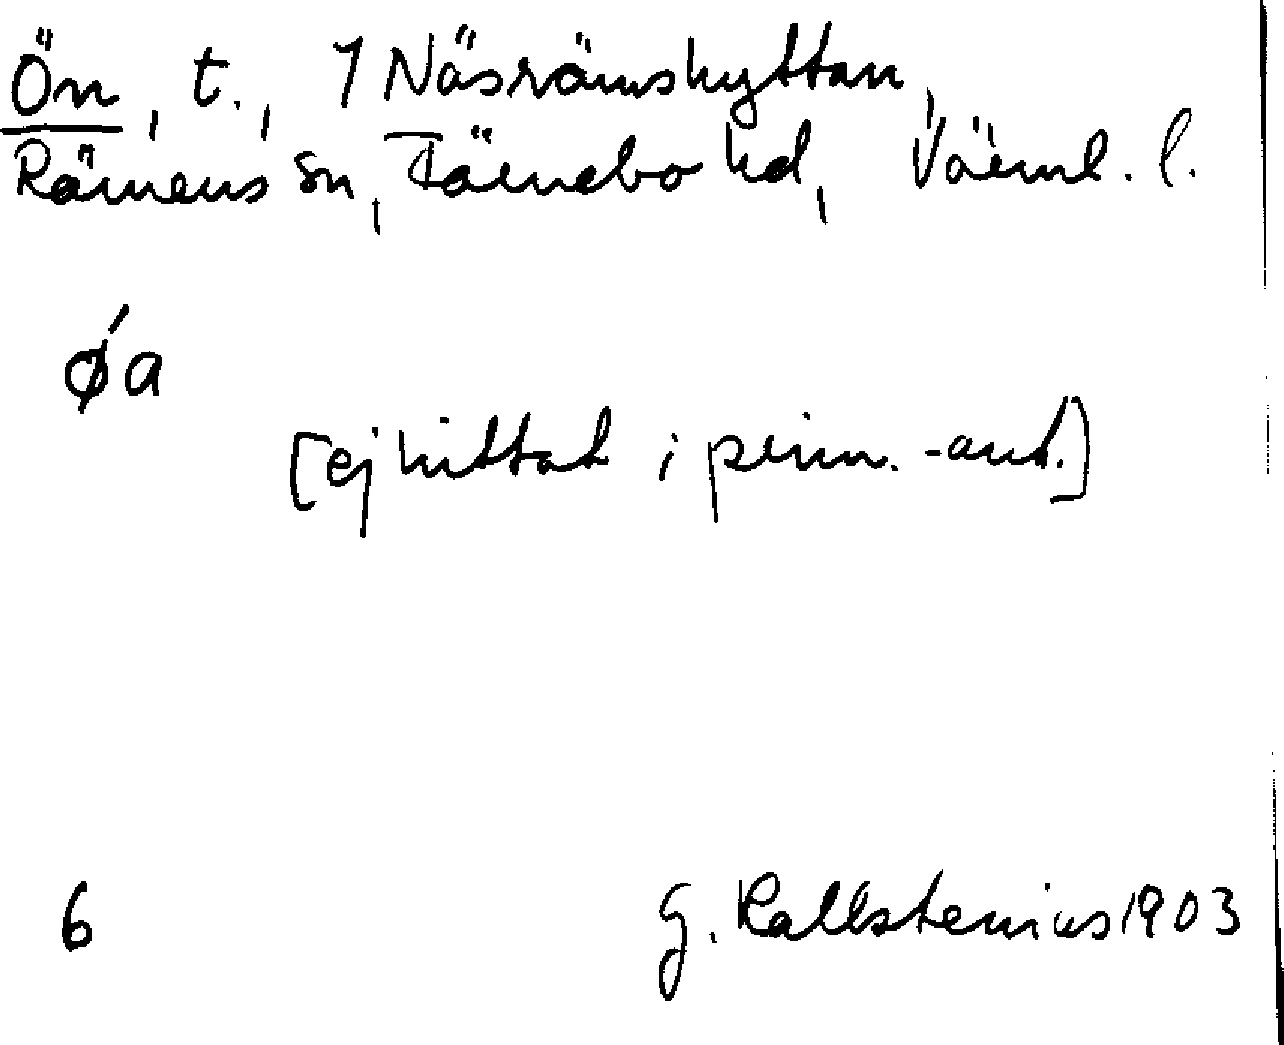 Ön, t., 1 Näsrämshyttan,
Rämens sn, Färnebo hd, Värml. l.
ǿa
[ej hittat i prim.-ant.]
6 G. Kallstenius 1903